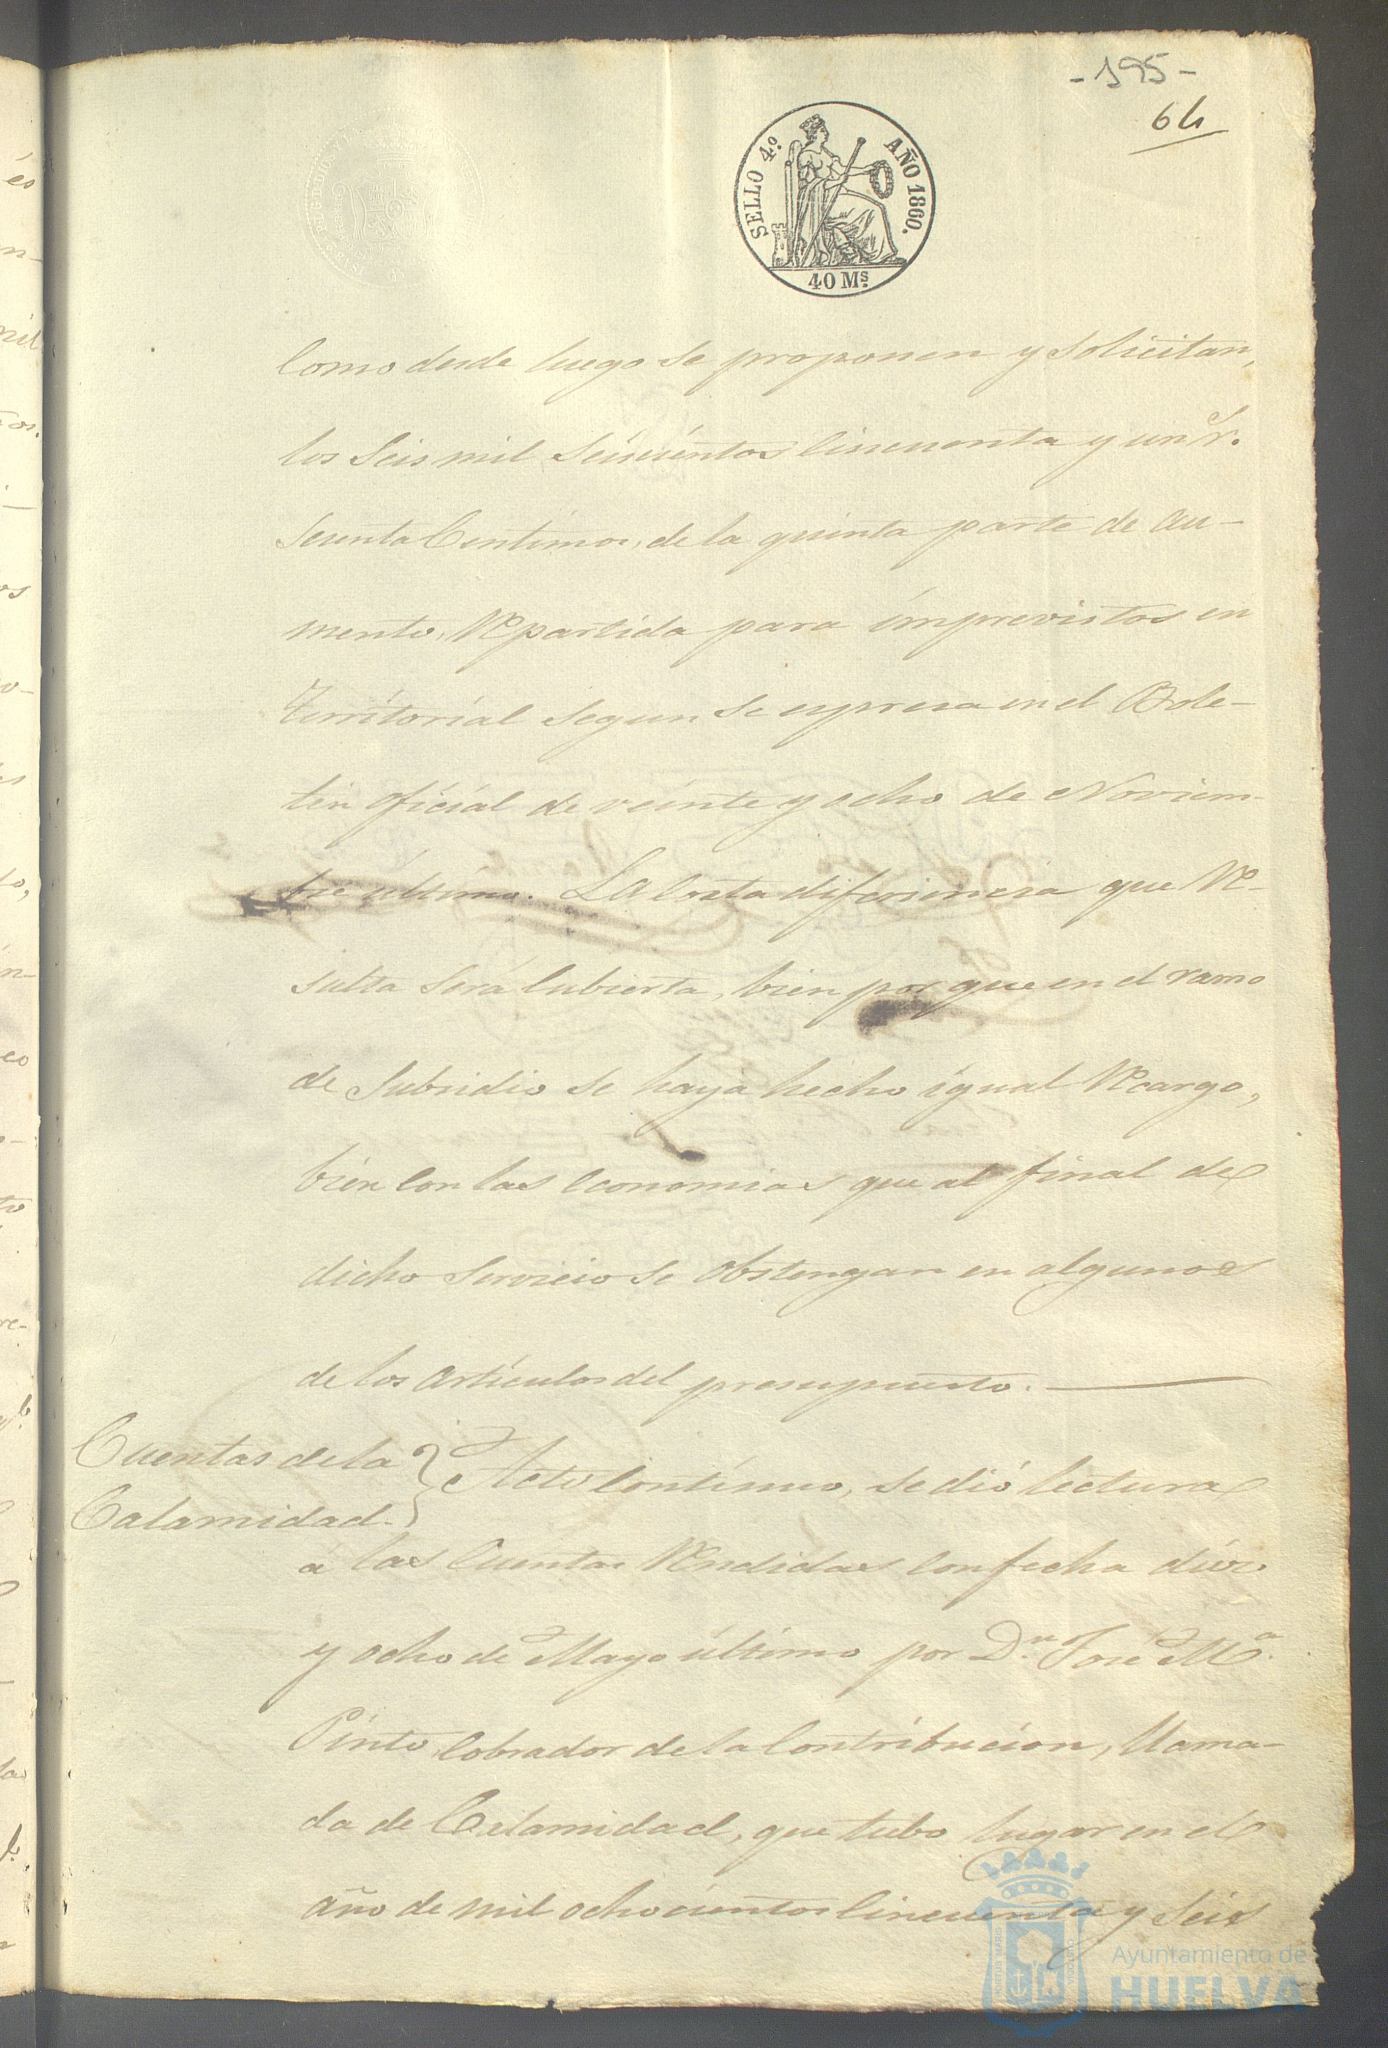 -195-
64
SELLO 4º AÑO 1860.
40 Ms.
Como desde luego se proponen y solicitan,
los seis mil seiscientos cincuenta y un r.s
sesenta centimos, de la quinta parte de au-
mento, Repartida para imprevistos en
territorial segun se espresa en el Bole-
tin oficial de veinte y ocho de Noviem-
bre ultimo. La corta diferiencia que Re-
sulta será cubierta, bien por que en el ramo
de subsidio se haya hecho igual Recargo,
bien con las economias que al final de
dicho servicio se obstengan en algunos
de los articulos del presupuesto.
Cuentas de la
Calamidad.
Acto continuo, se dió lectura
a las Cuentas Rendidas con fecha diez
y ocho de Mayo último por D.n José M.a
Pinto, cobrador de la Contribucion, llama-
da de Calamidad, que tubo lugar en el
año de mil ochocientos cincuenta y seis
Ayuntamiento de
HUELVA